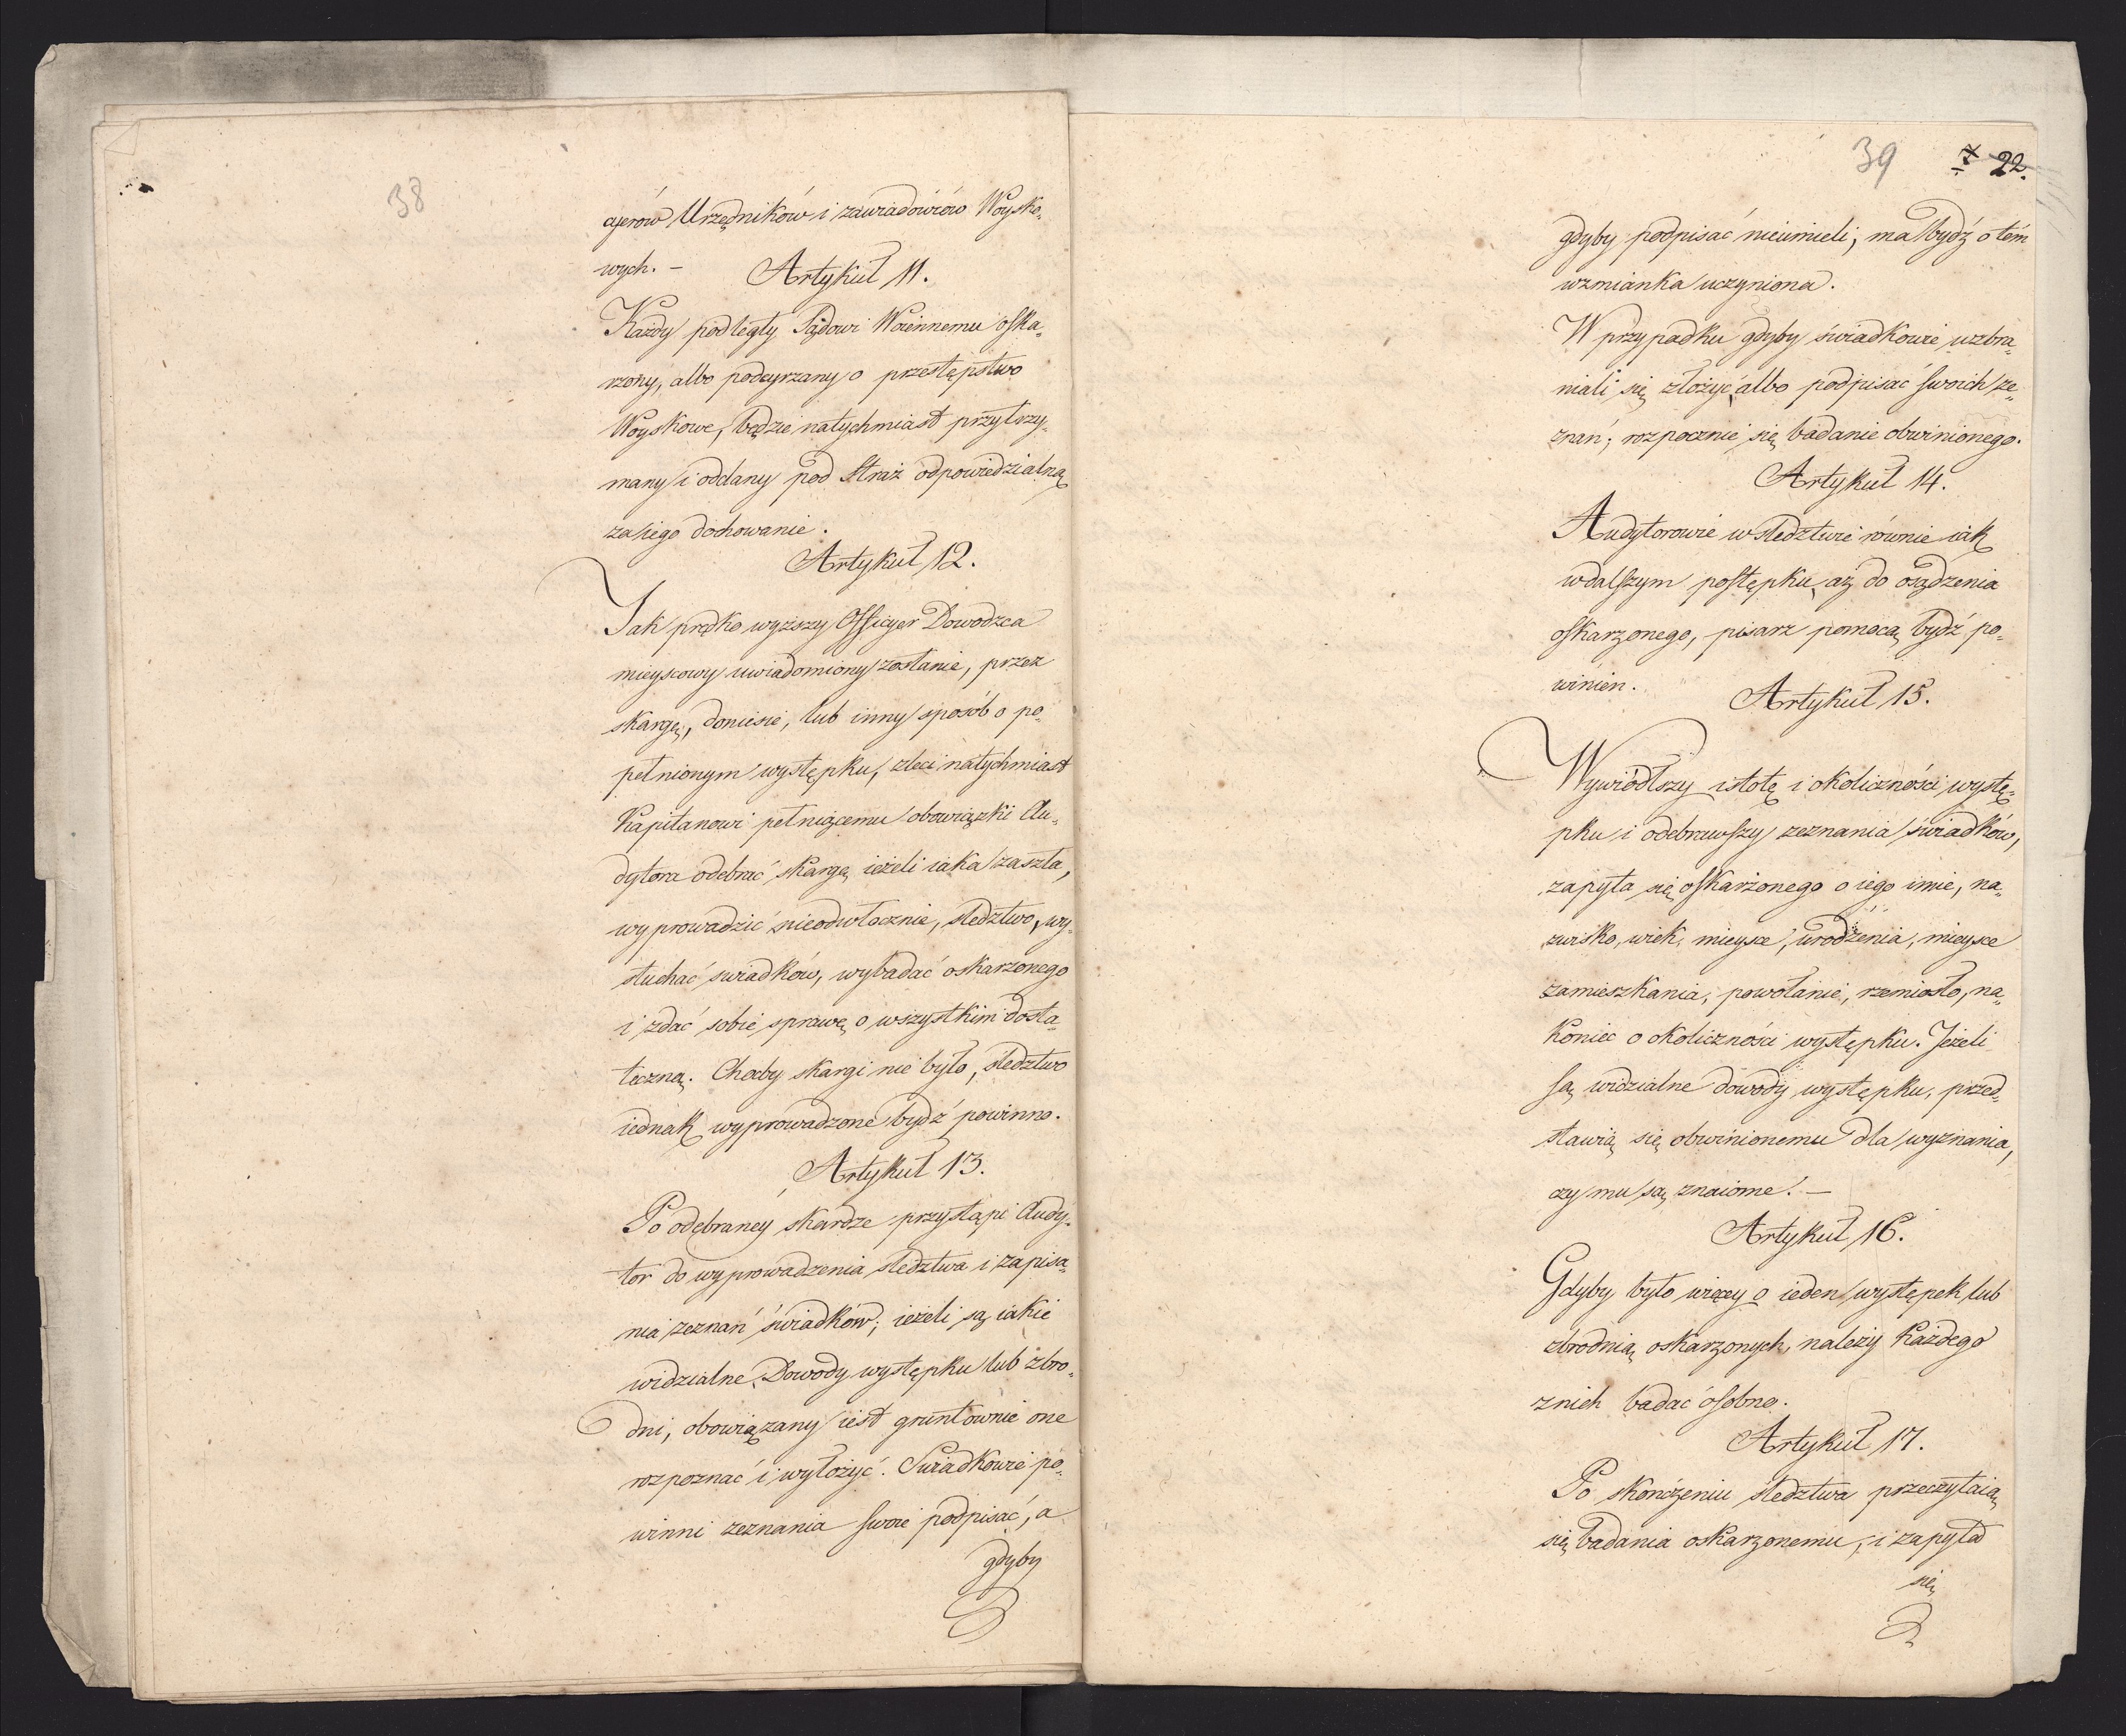 38
cyerów Urzędników i zawiadowców Woysko„
wych. —
Artykuł 11.
Każdy podległy Sądowi Woiennemu oska„
rzony, albo podeyrzany o przestępstwo
Woyskowe, będzie natychmiast przytrzy„
many i oddany pod Straż odpowiedzialną
za iego dochowanie.
Artykuł 12.
Jak prędko wyższy Officyer Dowodzca
mieyscowy uwiadomiony zostanie, przez
skargę, doniesie, lub inny sposób o po„
pełnionym występku, zleci natychmiast
Kapitanowi pełniącemu obowiązki Au„
dytora odebrać skargę ieżeli iaka zaszła,
wyprowadzić nieodwłocznie, śledztwo, wy„
słuchać swiadków, wybadać oskarzonego
i zdać sobie sprawę o wszystkim dosta„
teczną. Choćby skargi nie było, śledztwo
iednak wyprowadzone bydź powinno.
Artykuł 13.
Po odebraney skardze przystąpi Audy„
tor do wyprowadzenia śledztwa i zapisa„
nia zeznań świadków; ieżeli są iakie
widzialne Dowody występku lub zbro„
dni, obowiązany iest gruntownie one
rozpoznać i wyłożyć. Swiadkowie po„
winni zeznania swoie podpisać, a
gdyby
39
22.
gdyby podpisać nieumieli, ma bydź o tém
wzmianka uczyniona.
W przypadku gdyby świadkowie wzbra„
niali się złożyć albo podpisać swoich ze„
znań; rozpocznie się badanie obwinionego.
Artykuł 14.
Audytorowie w śledztwie równie iak
w dalszym postępku, aż do osądzenia
oskarzonego, pisarz pomocą bydź po„
winien.
Artykuł 15.
Wywiódłszy istotę i okoliczności wystę„
pku i odebrawszy zeznania świadków,
zapyta się oskarżonego o iego imie, na„
zwisko, wiek, mieysce, urodzenia, mieysce
zamieszkania, powołanie, rzemiosło, na„
koniec o okoliczności występku. Jeżeli
są widzialne dowody występku, przed„
stawią się obwinionemu dla wyznania,
czy mu są znaiome. —
Artykuł 16.
Gdyby było więcey o ieden występek lub
zbrodnią oskarzonych, należy każdego
z nich badać osobno.
Artykuł 17.
Po skończeniu śledztwa przeczytaią
się badania oskarzonemu, i zapytad
się